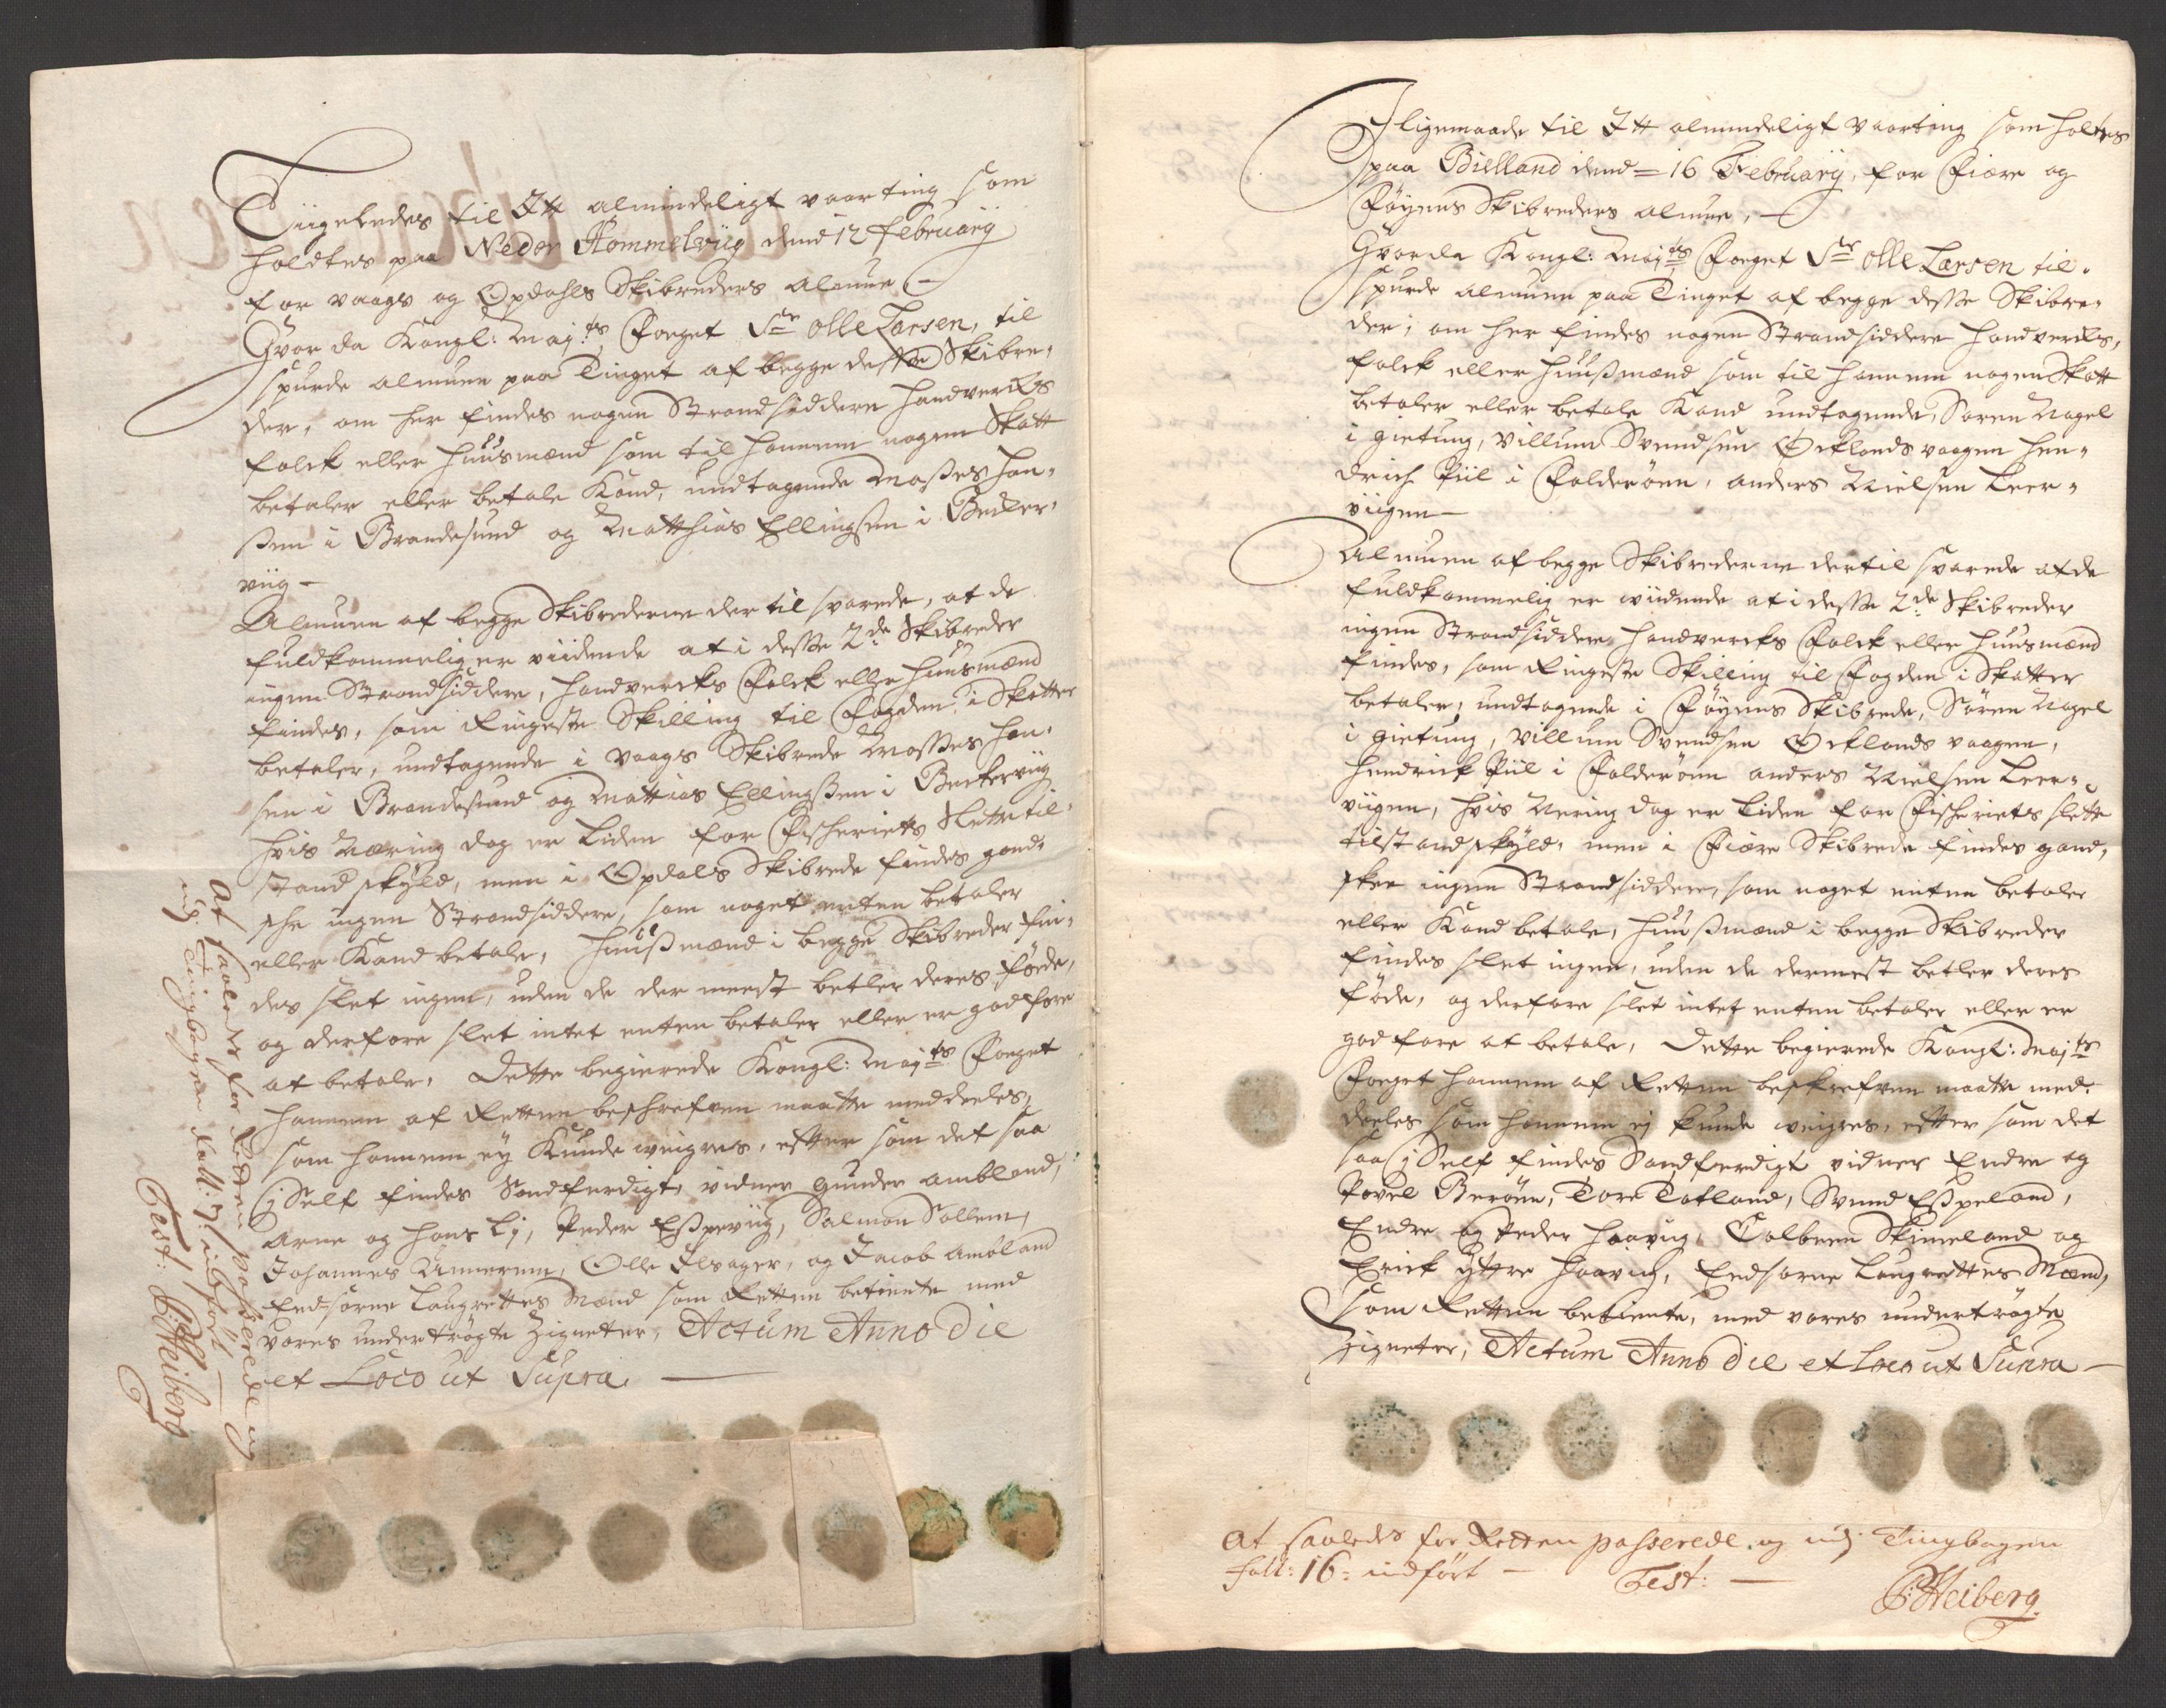 Liigeledes til Itt almindeligt vaarting som
holdtes paa Nedor Hommelviig dend 12 Februarÿ
for vaags og Opdahls Skibreders almue
Hvor da Kongl: Maÿ:ts Foeget Sr Olle Larsen, til
spurde almuen paa Tinget af begge desse Skibre-
der, om her findes nogen Strandsiddere handvercks
folck eller huusmænd som til hannem nogen Skatt
betaler eller betale Kand, undtagende Mosses han-
ßen i Brandesund og Matthias Ellingßen i Becker-
viig
Almuen af begge Skibrederne der til svarede, at de
fuldkommelig er viidende at i desse 2de Skibreder
ingen Strandsiddere, handvercks Folck eller huusmænd
findes, som Ringeste Skilling til Fogden i Skatter
betaler, undtagende i Vaags Skibrede Mosses han-
sen i Brandesund og Mattias Ellingßen i Beckerviig
hvis Næring dog er liden for Fischeriets Slette til-
stand skyld, men i Opdals Skibrede findes gand-
sche ingen Strandsiddere, som noget enten betaler
eller Kand betale, huußmænd i begge Skibreder fin-
des slet ingen, uden de der meest betler deres føde,
og derfore slet intet enten betaler eller er god fore
at betale. Dette begierede Kongl: Maÿ:ts Foeget
hannem af Retten beschrefven maatte meddeeles,
som hannem eÿ Kunde weigres, efter som det saa
i Self findes Sandferdigt, vidner Gunder Ambland,
Arne og hans Lÿ, Peder Eßpeviig, Salmon Sollem,
Johannes Ummerem, Olle Ilsager, og Jacob Ambland
Eedsorne Laugrettes Mænd som Retten betiente med
vores undertrÿgte Zigneter, Actum Anno Die
et Loco ut Supra.
At saaledes for Retten passerede og
udj Tingbogen Foll: 7: indført
Test: P:Heiberg
Iligemaade til Itt almindeligt vaarting som holtes
paa Bielland dend 16 Februarÿ, for Fiære og
Føÿens Skibreders almue,
Hvor da Kongl: Maÿ:ts Foeget Sr Olle Larsen til-
spurde almuen paa Tinget af begge desse Skibre-
der, om her findes nogen Strandsiddere handvercks,
folck eller huußmænd som til hannem nogen Skatt
betaler eller betale Kand undtagende, Søren Nagel
i gietung, Villum Svendsen Ecklands vaagen hen-
drich Piil i Folderøen, anders Nielsen Leer-
viigen
Almuen af begge Skibrederne dertil svarede at de
fuldkommelig er wiidende at i desse 2de Skibreder
ingen Strandsiddere handvercks Folck eller huusmænd
findes, som Ringeste Skilling til Fogden i Skatter
betaler, undtagende i Føÿens Skibrede, Søren Nagel
i gietung, Villum Svendsen Ecklands vaagen,
hendrick Piil i Folderøen anders Nielsen Leer-
viigen, hvis Nering dog er liden for Fischeriets slette
tilstand skÿld, men i Fiære Skibrede findes gand-
sker ingen Strandsiddere, som noget enten betaler
eller Kand betale, huußmænd i begge Skibreder
findes slet ingen, uden de dermest betler deres
føde, og derfore slet intet enten betaler eller er
god fore at betale, Dette begierede Kongl: Maÿ:ts
Foeget hannem af Retten beskrefven maatte med-
deeles som hannem eÿ kunde weigres, efter som det
saa i Self findes Sandferdigt vidner Endre og
Povel Berøen, Tore Totland, Svend Eßpeland,
Endre og Peder haavig, Tolben Skimeland og
Erick Ÿttre haavig, Eedsorne Laugrettes Mænd,
som Retten betiente, med vores undertrÿgte
Zigneter, Actum Anno Die et Loco ut Supra
At saaledes for Retten passerede og udj Tingbogen
foll: 16: indført Test:
P:Heiberg